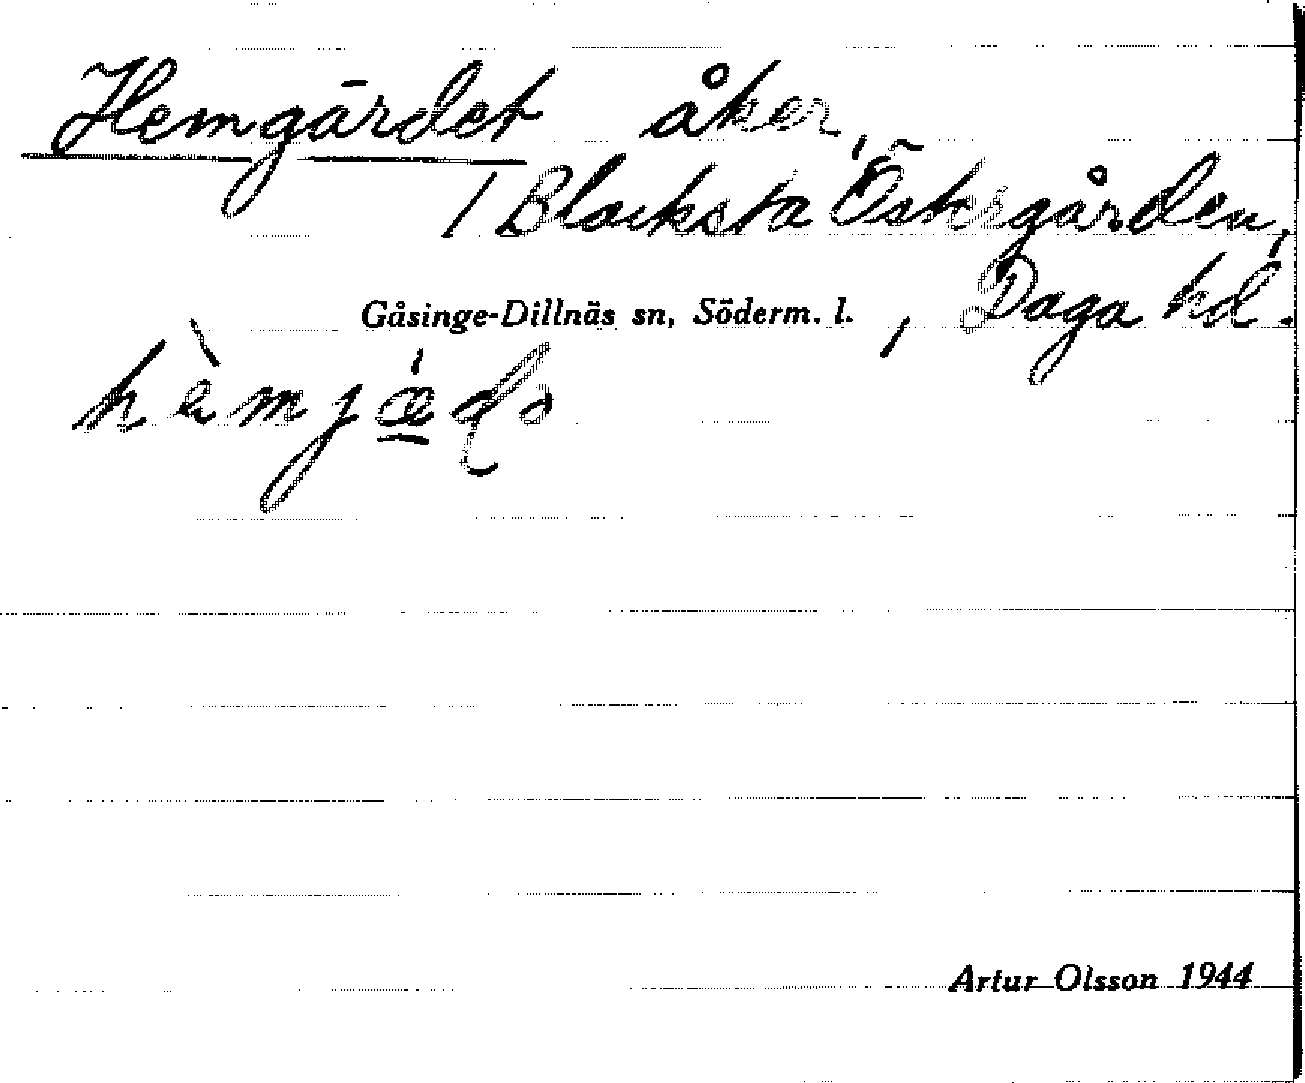 Hemgärdet åker,
/ Blacksta Östergården,
Gåsinge-Dillnäs sn, Söderm. l. , Daga hd.
hèmjǽ̠ḍə
Artur Olsson 1944